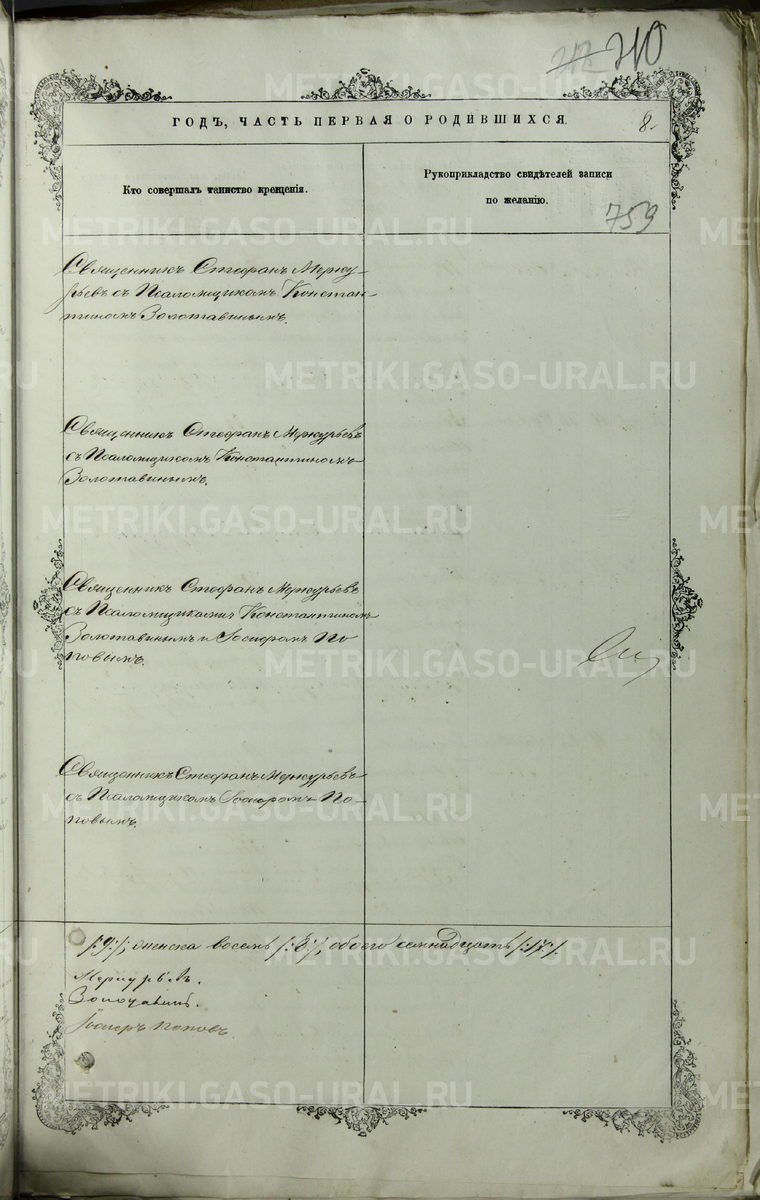 210
ГОДЪ, ЧАСТЬ ПЕРВАЯ О РОДИВШИХСЯ.
8.
Кто совершалъ таинство крещенія.
Рукоприкладство свидѣтелей записи
по желанію.
759
Священникъ Стефанъ Мерку-
рьевъ съ Псаломщикомъ Констан-
тиномъ Золотавинымъ.
Священникъ Стефанъ Меркурьевъ
съ Псаломщикомъ Константиномъ
Золотавинымъ.
Священникъ Стефанъ Меркурьевъ
съ Псаломщиками Константиномъ
Золотавинымъ и Іосифомъ По-
повымъ.
Священникъ Стефанъ Меркурьевъ
съ Псаломщикомъ Іосифомъ По-
повымъ.
/:9:/, женска восемь /:8:/, обоего семнадцать /:17:/.
Меркурьевъ.
Золотавинъ.
Поповъ.
METRIKI.GASO-URAL.RU